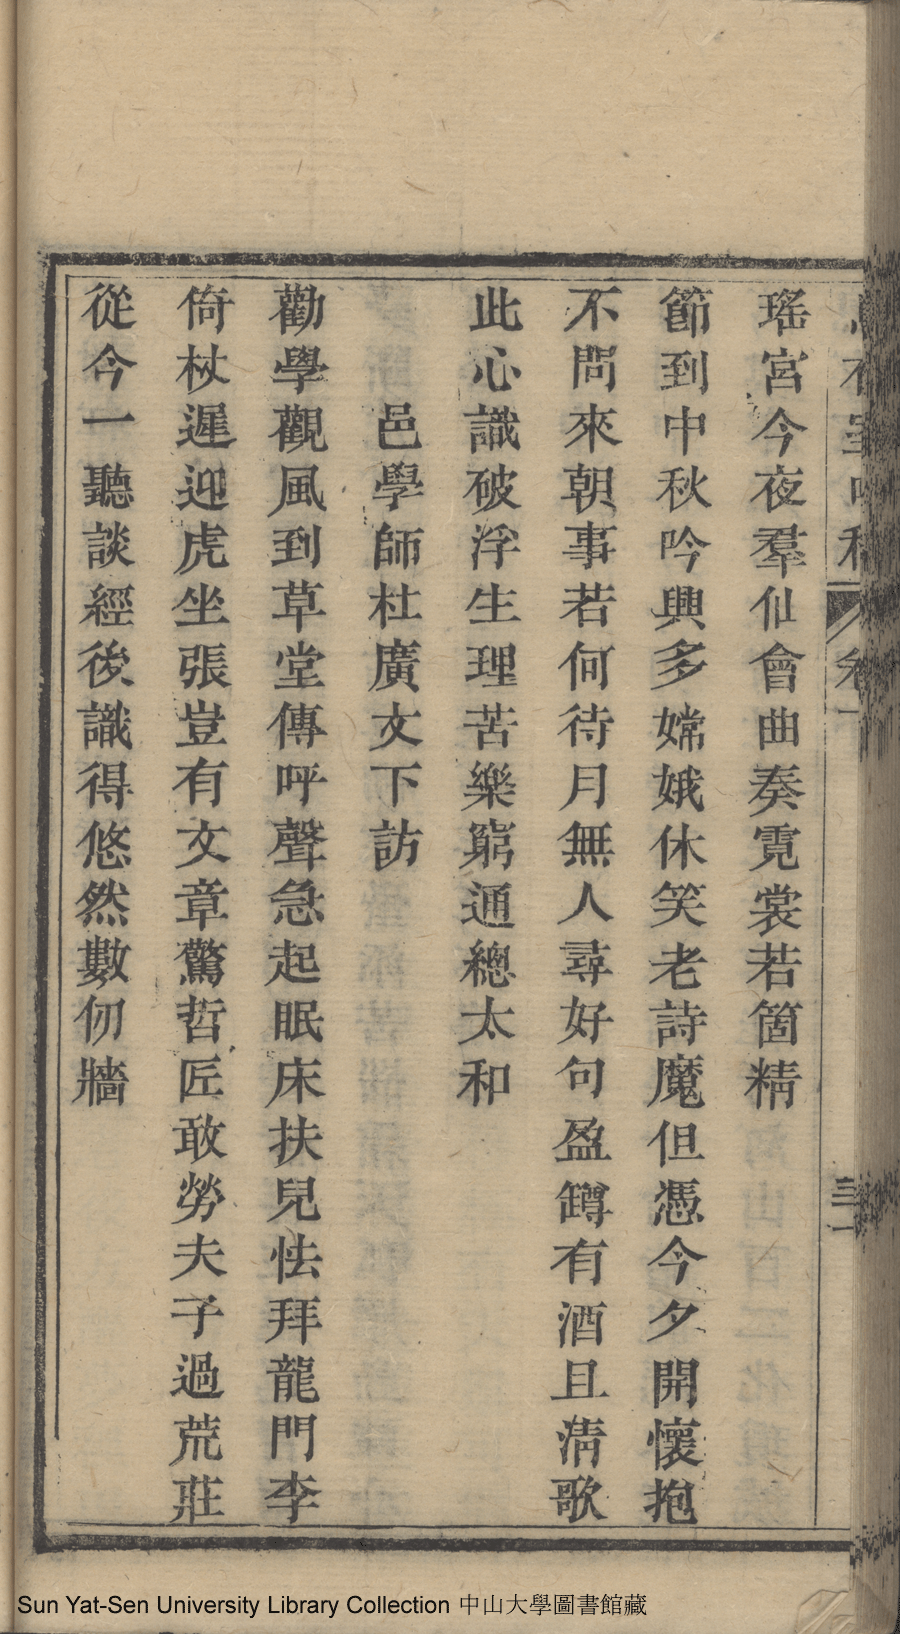 瑤宮今夜羣仙會曲奏霓裳若箇精
節到中秋吟興多嫦娥休笑老詩魔但憑今夕開懷抱
不問來朝事若何待月無人尋好句盈罇有酒且淸歌
此心識破浮生理苦樂窮通總太和
邑學師杜廣文下訪
勸學觀風到草堂傳呼聲急起眠床扶兒怯拜龍門李
倚杖遲迎虎坐張豈有文章驚哲匠敢勞夫子過荒莊
從今一聽談經後識得悠然數仞牆
Sun Yat-Sen University Library Collection 中山大學圖書館藏